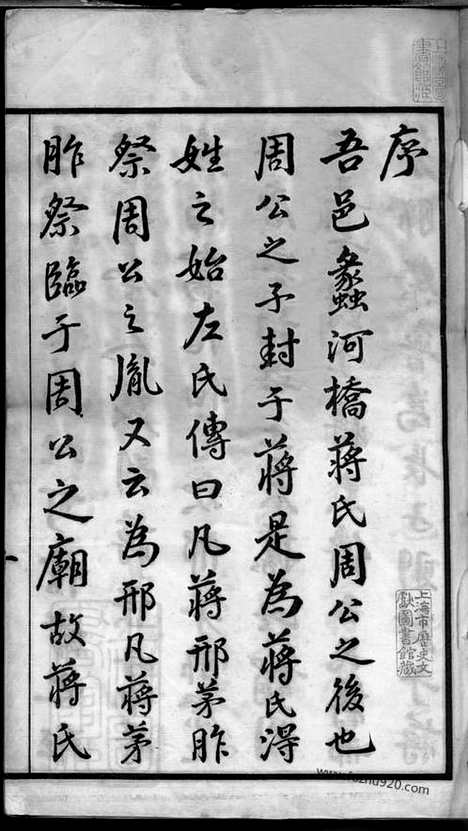 序
吾邑蠡河橋蔣氏周公之後也
周公之子封于蔣是為蔣氏得
姓之始左氏傳曰凡蔣邢茅昨
祭周公之胤又云為邢凡蔣茅
昨祭臨于周公之廟故蔣氏
上海市歷史文
獻圖書館藏
www.fozhu920.com